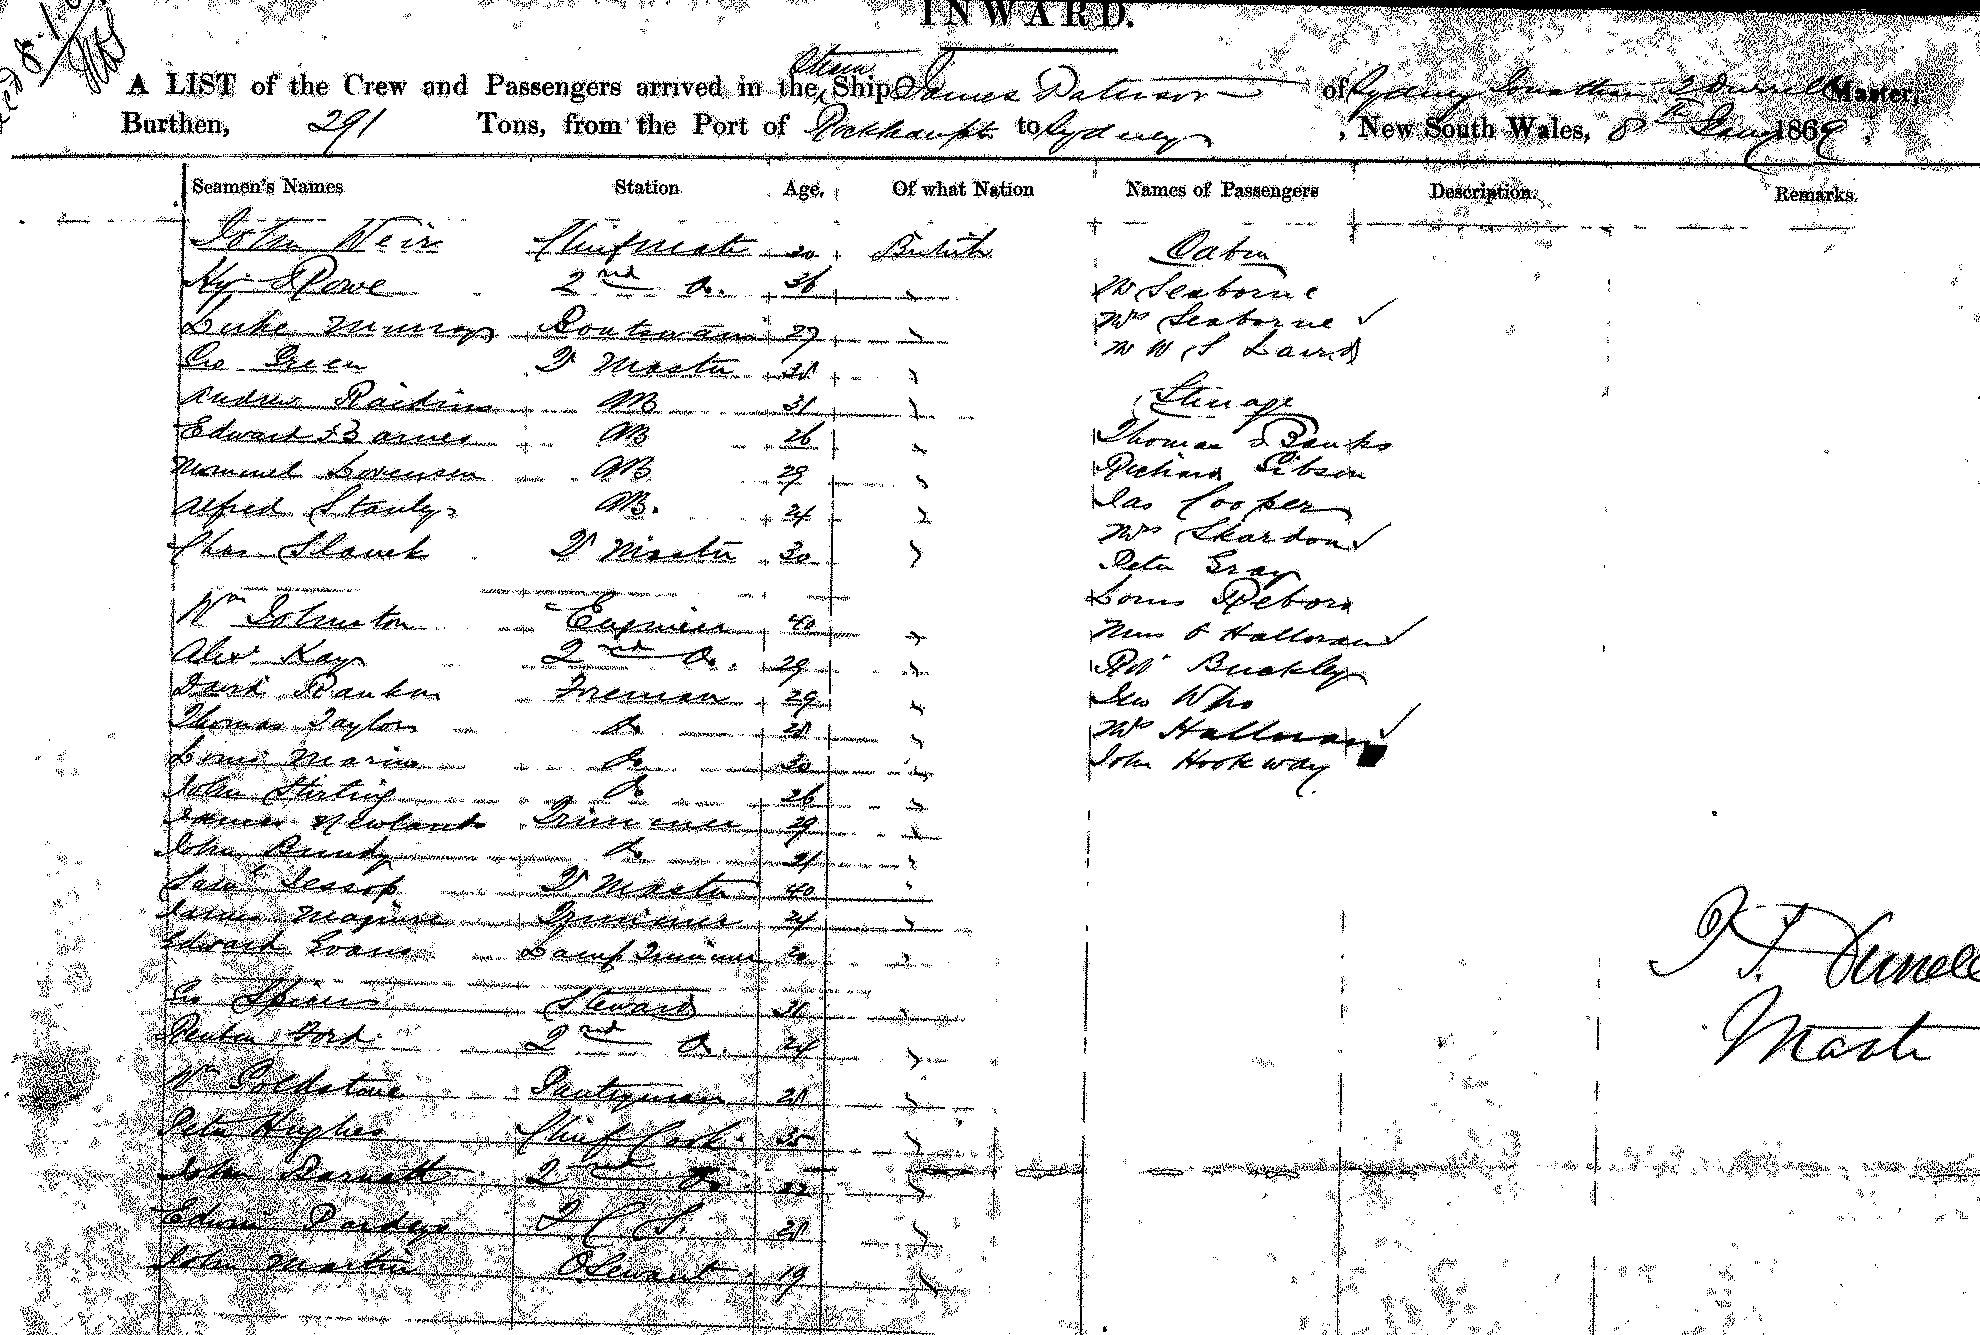 INWARD.
A LIST of the Crew and Passengers arrived in the Steam Ship James Paterson of Sydney Master,
Burthen, 291 Tons, from the Port of Rockhampt to Sydney, New South Wales, 8th Jany 1869.
Seamen's Names Station Age. Of what Nation Names of Passengers Description. Remarks.
John Weir Chief mate 30 British Cabin
Hy Rowe 2nd Do. 36 " Mr Seaborne
Luke Murray Boatswain 27 " Mrs Seaborne ✓
Geo Green Qr Master " Mr W S Laird
Andrew AB 31 " Steerage
Edward Barnes AB 26 " Thomas Banks
Sorensen AB 29 " Richard Gibson
Alfred Stanly AB. 24 " Jas Cooper
Chas Qr Master 30 " Mrs Skardon ✓
Peter Gray
Wm Johnston Engineer 40 " Louis
Alexr Kay 2nd Do. 29 " O Halloran ✓
David Rankin Fireman 29 " Buckley
Thomas Taylor Do 28 " Who
Louis Do 30 " Mrs Halloran ✓
John Stirling Do 26 " John Hookway
James Newlands Trimmer 29 "
John Do 21 "
Saml Jessop Qr Master 40 "
James Maguire Trimmer 24 "
Edward Evans Lamp Trimmer 20 "
Geo Steward "
Reuben Ford 2nd Do. 24 "
Wm Goldstone Pantryman 28 "
Peter Hughes Chief Cook 35 "
John Barnett 2nd Do. 22 "
Edwin Pardey 28 "
John Martin Servant 19 "
Master